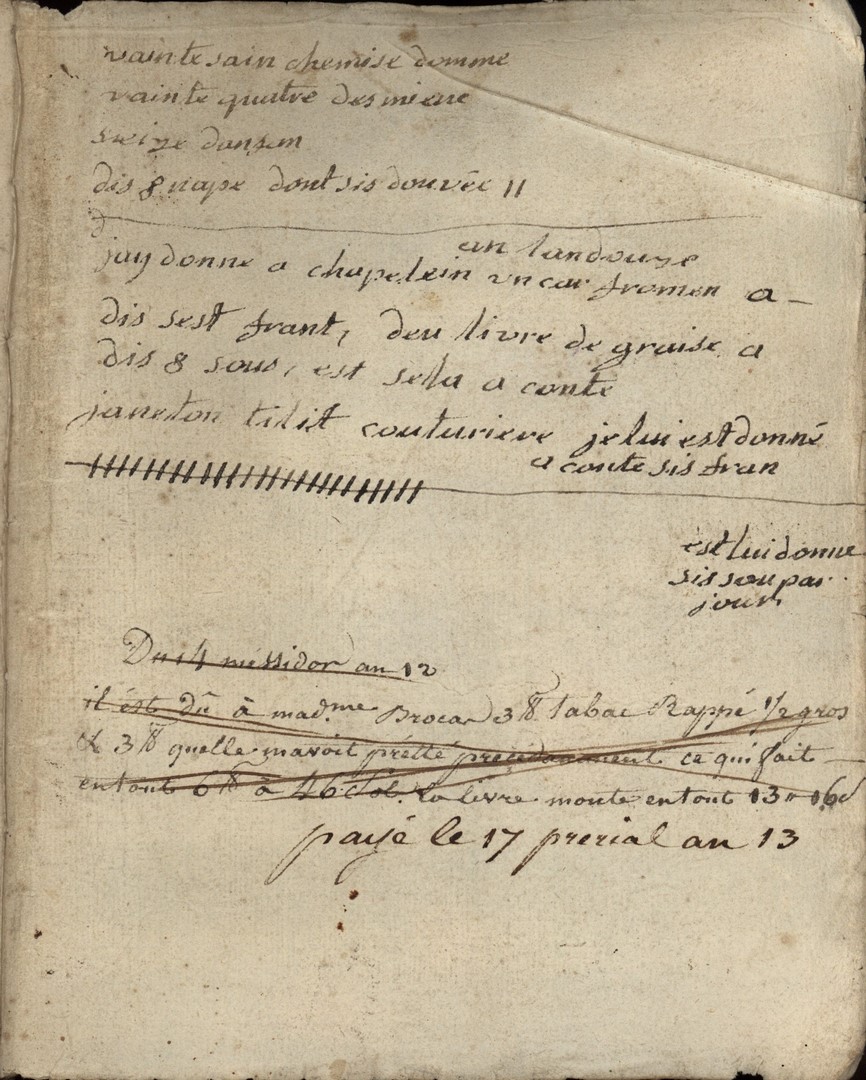 vainte sain chemise domme
vainte quatre des miene
seize danfan
dis 8 nape dont sis douvée 11
an landouze
jay donne a chapelein un car fromen a
dis sest frant, deu livre de graise a
dis 8 sous, est sela a conte
janeton tilit couturiere je lui est donné
a conte sis fran
est lui donne
sis sou par
jour
Du 4 méssidor an 12
il ést dû à mad.me Brocard 3 ℔ tabac Rappé 1/2 gros
& 3 ℔ quelle mavoit prétté précédamment ce qui fait
entout 6 ℔ à 46 sol. la livre monte entout 13 16
payé le 17 prerial an 13